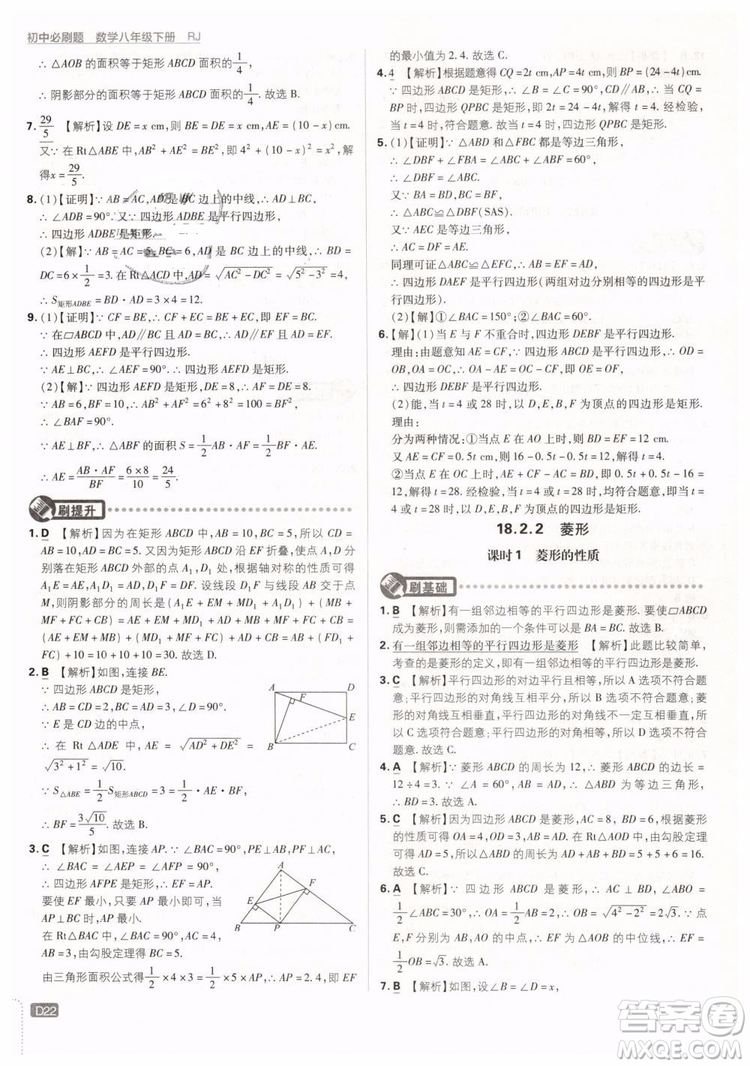 初中必刷题 数学八年级下册 RJ
∴ △AOB 的面积等于矩形 ABCD 面积的1/4,
∴ 阴影部分的面积等于矩形 ABCD 面积的1/4. 故选 B.
7. 29/5 【解析】设 DE = x cm,则 BE = DE = x,AE = (10 - x) cm.
又∵ 在 Rt△ABE 中,AB² + AE² = BE²,∴ 4² + (10 - x)² = x²,解
得x = 29/5.
8. (1)【证明】∵ AB = AC,AD 是 BC 边上的中线,∴ AD⊥BC,
∴ ∠ADB = 90°. 又∵ 四边形 ADBE 是平行四边形,
∴ 四边形 ADBE 是矩形.
(2)【解】∵ AB = AC = 5,BC = 6,AD 是 BC 边上的中线,∴ BD =
DC = 6 × 1/2 = 3. 在 Rt△ACD 中,AD = √(AC² - DC²) = √(5² - 3²) = 4,
∴ S矩形ADBE = BD · AD = 3×4 = 12.
9. (1)【证明】∵ CF = BE,∴ CF + EC = BE + EC,即 EF = BC.
∵ 在▱ABCD 中,AD∥BC 且 AD = BC,∴ AD∥EF 且 AD = EF,
∴ 四边形 AEFD 是平行四边形.
∵ AE⊥BC,∴ ∠AEF = 90°,∴ 四边形 AEFD 是矩形.
(2)【解】∵ 四边形 AEFD 是矩形,DE = 8,∴ AF = DE = 8.
∵ AB = 6,BF = 10,∴ AB² + AF² = 6² + 8² = 100 = BF²,∴ ∠
BAF = 90°.
∵ AE⊥BF,∴ △ABF 的面积 S = 1/2 AB · AF = 1/2 BF · AE.
∴ AE = AB · AF/BF = 6×8/10 = 24/5.
刷提升
1. D 【解析】因为在矩形 ABCD 中,AB = 10,BC = 5,所以 CD =
AB = 10,AD = BC = 5. 因为将矩形 ABCD 沿 EF 折叠,使点 A,D 分
别落在矩形 ABCD 外部的点 A₁,D₁ 处,所以根据轴对称的性质可
得 A₁E = AE,A₁D₁ = AD,D₁F = DF. 设线段 D₁F 与线段 AB 交于
点 M,则阴影部分的周长是(A₁E + EM + MD₁ + A₁D₁) + (MB +
MF + FC + CB) = (AE + EM + MD₁ + AD) + (MB + MF + FC +
CB) = (AE + EM + MB) + (MD₁ + MF + FC) + AD + CB = AB + (FD₁ +
FC) + 10 = AB + (FD + FC) + 10 = 10 + 10 + 10 = 30. 故选 D.
2. B 【解析】如图,连接 BE.
∵ 四边形 ABCD 是矩形,
∴ AB = CD = 2,BC = AD = 3,∠D = 90°.
∵ E 是 CD 边的中点,
∴ DE = 1/2 CD = 1.
∴ 在 Rt△ADE 中,AE = √(AD² + DE²) =
√(3² + 1²) = √10.
∵ S△ABE = 1/2 S矩形ABCD = 3 = 1/2 · AE · BF,
∴ BF = 3√10/5. 故选 B.
A D
F
E
B C
3. C 【解析】如图,连接 AP.
∵ ∠BAC = ∠AEP = ∠AFP = 90°,PE⊥AB,PF⊥AC,
∴ 四边形 AFPE 是矩形,∴ EF = AP.
要使 EF 最小,只要 AP 最小即可. 过点
A 作 AP⊥BC 于点 P,此时 AP 最小.
在 Rt△BAC 中,∠BAC = 90°,AC = 4,
AB = 3,∴ BC = 5.
由三角形面积公式得1/2×4×3 = 1/2×5×AP,∴ AP = 2.4,即 EF
A
F
E
B P C
D22
的最小值为 2.4. 故选 C.
4. 4 【解析】根据题意得 CQ = 2t cm,AP = 4t cm,则 BP = (24 - 4t) cm.
∵ 四边形 ABCD 是矩形,∴ ∠B = ∠C = 90°,CD∥AB,∴ 只有
CQ = BP 时,四边形 QPBC 是矩形,即 2t = 24 - 4t,解得 t = 4. 经检验,
当 t = 4 时,四边形 QPBC 是矩形.
5. (1)【证明】∵ △ABD 和△FBC 都是等边三角形,
∴ ∠DBF + ∠FBA = ∠ABC + ∠FBA = 60°,∴ ∠DBF = ∠ABC.
又∵ BA = BD,BF = BC,
∴ △ABC≌△DBF(SAS).
∴ AC = DF. 又∵ △ACE 是等边三角形,
∴ AC = DF = AE.
同理可证△ABC≌△EFC,∴ AB = EF = AD,
∴ 四边形 DAEF 是平行四边形(两组对边分别相等的四边形是平
行四边形).
(2)【解】①∠BAC = 150°;②∠BAC = 60°.
6. 【解】(1)当 E 与 F 不重合时,四边形 DEBF 是平行四边形.
理由:∵ 四边形 ABCD 是平行四边形,
∴ OA = OC,OB = OD. 由题意知 AE = CF,∴ OE = OF,
∴ 四边形 DEBF 是平行四边形.
(2)能,当 t = 4 或 28 时,以 D,E,B,F 为顶点的四边形是矩形.
理由:
分为两种情况:①当点 E 在 AO 上时,若四边形 DEBF 是矩形,
∵ AE = CF = 0.5t cm,∴ 16 - 0.5t - 0.5t = 12,解得 t = 4.
②当点 E 在 OC 上,EF = 12 cm 时,同理可得 0.5t + 0.5t - 16 =
12,解得 t = 28. 经检验,当 t = 4 或 28 时,均符合条件.
综上所述,当 t = 4 或 28 时,以 D,E,B,F 为顶点的四边形是矩形.
18.2.2 菱形
课时1 菱形的性质
刷基础
1. B 【解析】有一组邻边相等的平行四边形是菱形. 要使▱ABCD
成为菱形,则需添加的一个条件可以是 BA = BC. 故选 B.
2. 有一组邻边相等的平行四边形是菱形 【解析】此题比较简单,
考查的是菱形的定义,有一组邻边相等的平行四边形是菱形.
3. C 【解析】平行四边形的对边平行且相等,所以 A 选项不符合题
意;平行四边形的对角线互相平分,所以 B 选项不符合题意;菱
形的对角线互相垂直,平行四边形的对角线不一定互相垂直,所
以 C 选项符合题意;平行四边形的对角相等,所以 D 选项不符合
题意. 故选 C.
4. A 【解析】∵ 菱形 ABCD 的周长为 12,∴ 菱形 ABCD 的边长 =
12÷4 = 3. ∵ ∠ABC = 120°,∴ ∠A = 60°,∴ △ABD 为等边三角形,
∴ BD = 3. 故选 A.
5. C 【解析】∵ 四边形 ABCD 是菱形,AC = 8,BD = 6,∴ OB =
OD = 3,OA = OC = 4,AC⊥BD. 在 Rt△AOB 中,由勾股定理可
得AB = √(3² + 4²) = 5. 故选 C.
6. A 【解析】∵ 在菱形 ABCD 中,∴ AC⊥BD,∠ABO =
1/2∠ABC = 30°,∴ OA = 1/2 AB = 2,∴ OB = √(4² - 2²) = 2√3. ∵ 点
E,F 分别为 AO,AB 的中点,∴ EF 为△AOB 的中位线,∴ EF =
1/2 OB = √3. 故选 A.
7. B 【解析】如图,设 AC 与 BD 交于点 E,
答案圈